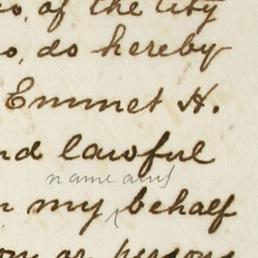 of the City
do hereby
Emmet H.
nd lawful
name and
my behalf